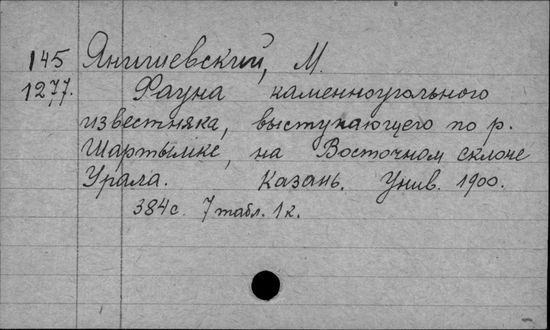 145 Янишевский, М.
1277. Фауна каменноугольного
известняка, выступающего по р.
Шартымке, на Восточном склоне
Урала. Казань. Унив. 1900.
384 с. 7 табл. 1 к.